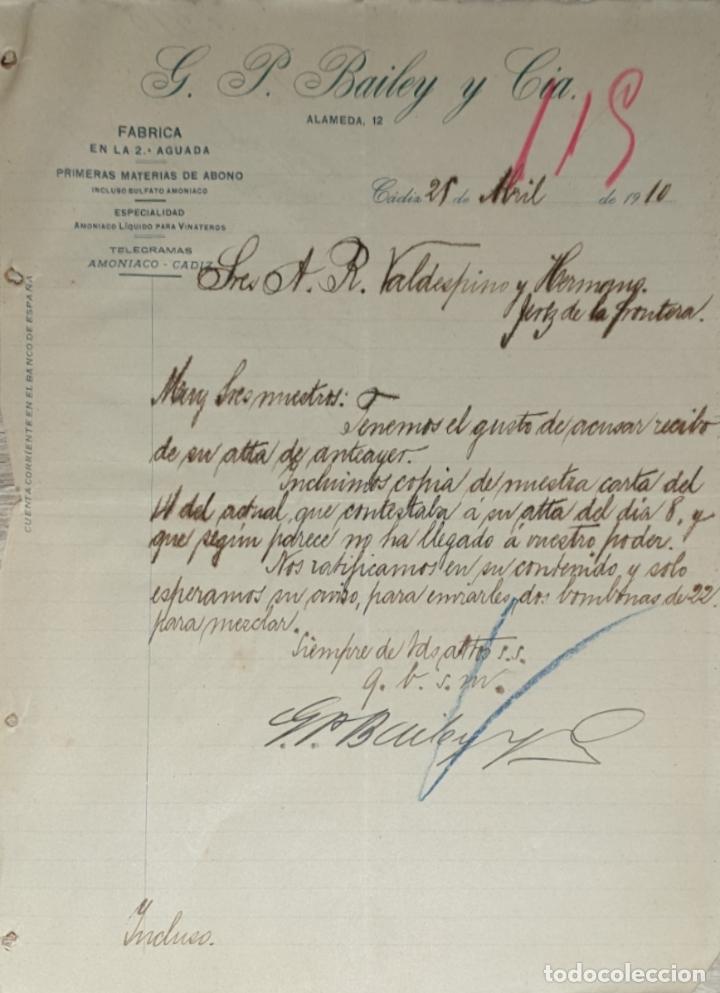 G. P. Bailey y Cia.
ALAMEDA, 12
115
FABRICA
EN LA 2.ª AGUADA
PRIMERAS MATERIAS DE ABONO
INCLUSO SULFATO AMONIACO
ESPECIALIDAD
AMONIACO LÍQUIDO PARA VINATEROS
TELEGRAMAS
AMONIACO - CADIZ
CUENTA CORRIENTE EN EL BANCO DE ESPAÑA
Cádiz 25 de Abril de 1910
Sres A. R. Valdespino y Hermano.
Jerez de la frontera.
Muy Sres nuestros:
Tenemos el gusto de acusar recibo
de su atta de anteayer.
Incluimos copia de nuestra carta del
del actual, que contestaba á su atta del dia 8, y
que según parece no ha llegado á vuestro poder.
Nos ratificamos en su contenido, y solo
esperamos su aviso, para enviarles dos bombonas de 22
para mezclar.
Siempre de Vds attos s.s.
q. b. s. m.
G.P. Bailey y C
Incluso.
todocoleccion
todocoleccion.net